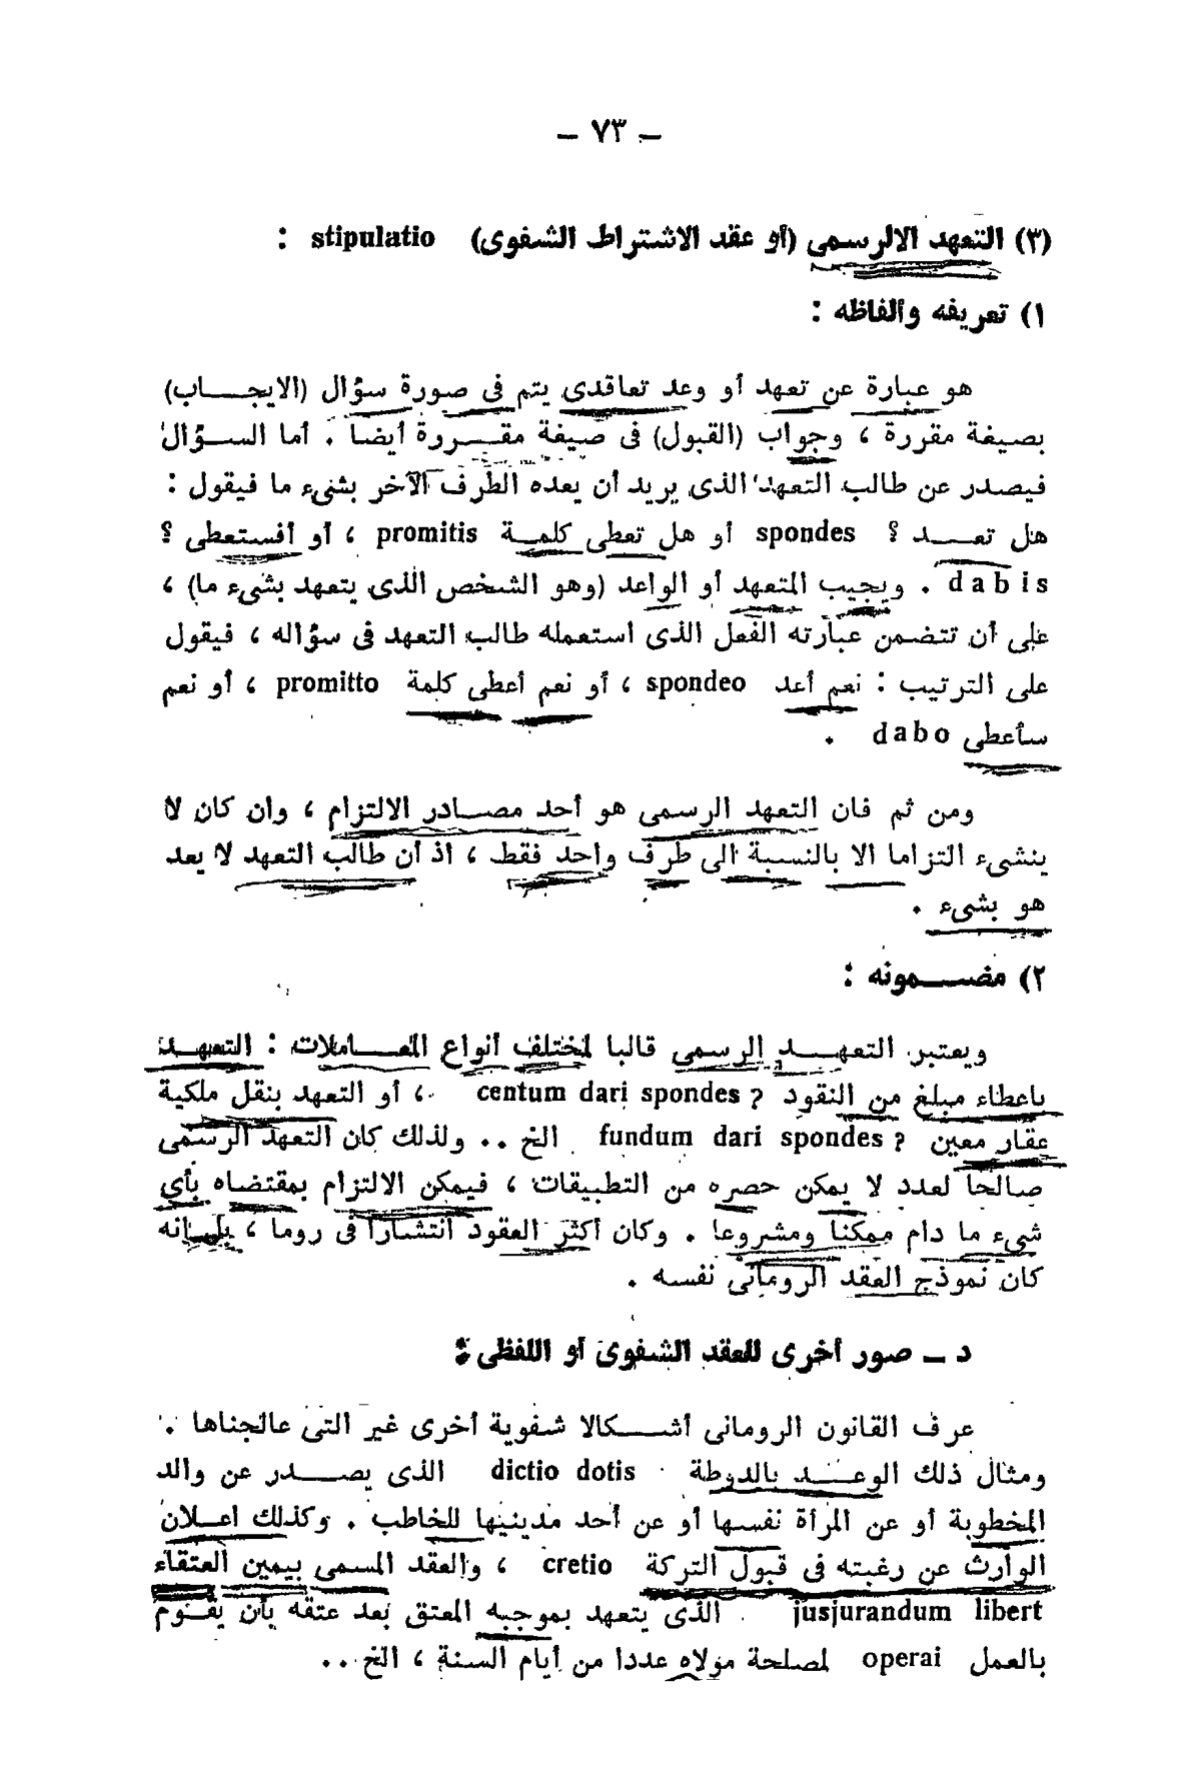 – ٧٣ –
(٣) التعهد الالرسمى (أو عقد الاشتراط الشفوى) stipulatio :
١) تعريفه والفاظه :
هو عبارة عن تعهد أو وعد تعاقدى يتم فى صورة سؤال (الايجاب)
بصيغة مقررة ، وجواب (القبول) فى صيغة مقررة أيضا . أما السؤال
فيصدر عن طالب التعهد الذى يريد أن يعده الطرف الآخر بشىء ما فيقول :
هل تعد ؟ spondes أو هل تعطى كلمة promitis ، أو أفستعطى ؟
dabis . ويجيب المتعهد أو الواعد (وهو الشخص الذى يتعهد بشىء ما) ،
على أن تتضمن عبارته الفعل الذى استعمله طالب التعهد فى سؤاله ، فيقول
على الترتيب : نعم أعد spondeo ، أو نعم أعطى كلمة promitto ، أو نعم
سأعطى dabo .
ومن ثم فان التعهد الرسمى هو أحد مصادر الالتزام ، وان كان لا
ينشىء التزاما الا بالنسبة الى طرف واحد فقط ، اذ أن طالب التعهد لا يعد
هو بشىء .
٢) مضمونه :
ويعتبر التعهد الرسمى قالبا لمختلف أنواع المعاملات : التعهد
باعطاء مبلغ من النقود centum dari spondes ? ، أو التعهد بنقل ملكية
عقار معين fundum dari spondes ? الخ .. ولذلك كان التعهد الرسمى
صالحا لعدد لا يمكن حصره من التطبيقات ، فيمكن الالتزام بمقتضاه بأى
شىء ما دام ممكنا ومشروعا . وكان أكثر العقود انتشارا فى روما ، بل انه
كان نموذج العقد الرومانى نفسه .
د – صور أخرى للعقد الشفوى أو اللفظى :
عرف القانون الرومانى أشكالا شفوية أخرى غير التى عالجناها .
ومثال ذلك الوعد بالدوطة dictio dotis الذى يصدر عن والد
المخطوبة أو عن المرأة نفسها أو عن أحد مدينيها للخاطب . وكذلك اعلان
الوارث عن رغبته فى قبول التركة cretio ، والعقد المسمى بيمين العتقاء
jusjurandum libert الذى يتعهد بموجبه المعتق بعد عتقه بأن يقوم
بالعمل operai لمصلحة مولاه عددا من أيام السنة ، الخ ..